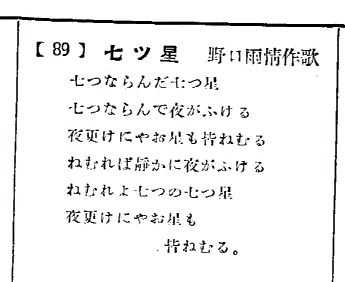 【89】 七ツ星 野口雨情作歌
七つならんだ七つ星
七つならんで夜がふける
夜更けにやお星も皆ねむる
ねむれば靜かに夜がふける
ねむれよ七つの七つ星
夜更けにやお星も
皆ねむる。